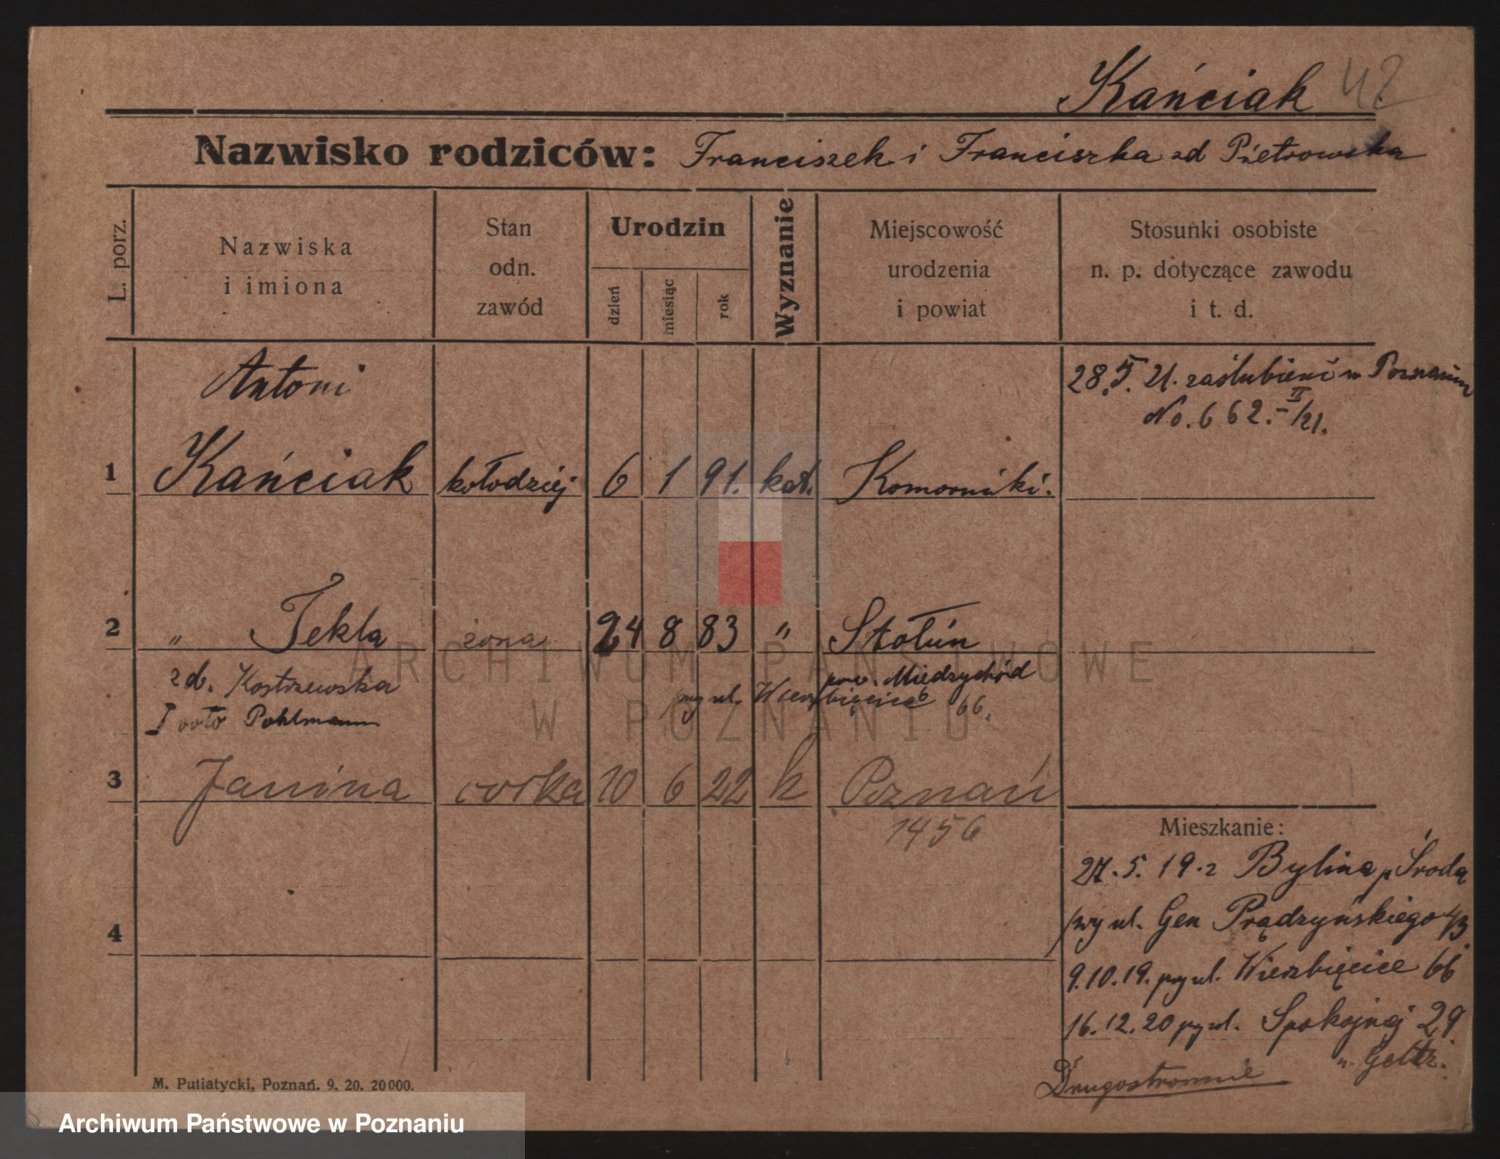 Kańciak 42
Nazwisko rodziców: Franciszek i Franciszka zd Pietrowska
L. porz.
Nazwiska
i imiona
Stan
odn.
zawód
Urodzin
dzień
miesiąc
rok
Wyznanie
Miejscowość
urodzenia
i powiat
Stosunki osobiste
n. p. dotyczące zawodu
i t. d.
Antoni
28.5.21. zaślubieni w Poznaniu
No. 662.-II/21.
1 Kańciak kołodziej 6 1 91. kat. Komorniki.
2 „ Tekla żona 24 8 83 „ Stołuń
zd. Kostrzewska pow. Międzychód
I voto Pohlmann przy ul. Wierzbięcice 66.
3 Janina córka 10 6 22 k Poznań
1456
Mieszkanie:
27.5.19. z Bylina p Środa
przy ul. Gen Prądzyńskiego 43
9.10.19. przy ul. Wierzbięcice 66
16.12.20 przy ul. Spokojnej 29
u.
4
Drugostronnie
M. Putiatycki, Poznań. 9. 20. 20000.
ARCHIWUM PAŃSTWOWE
W POZNANIU
Archiwum Państwowe w Poznaniu